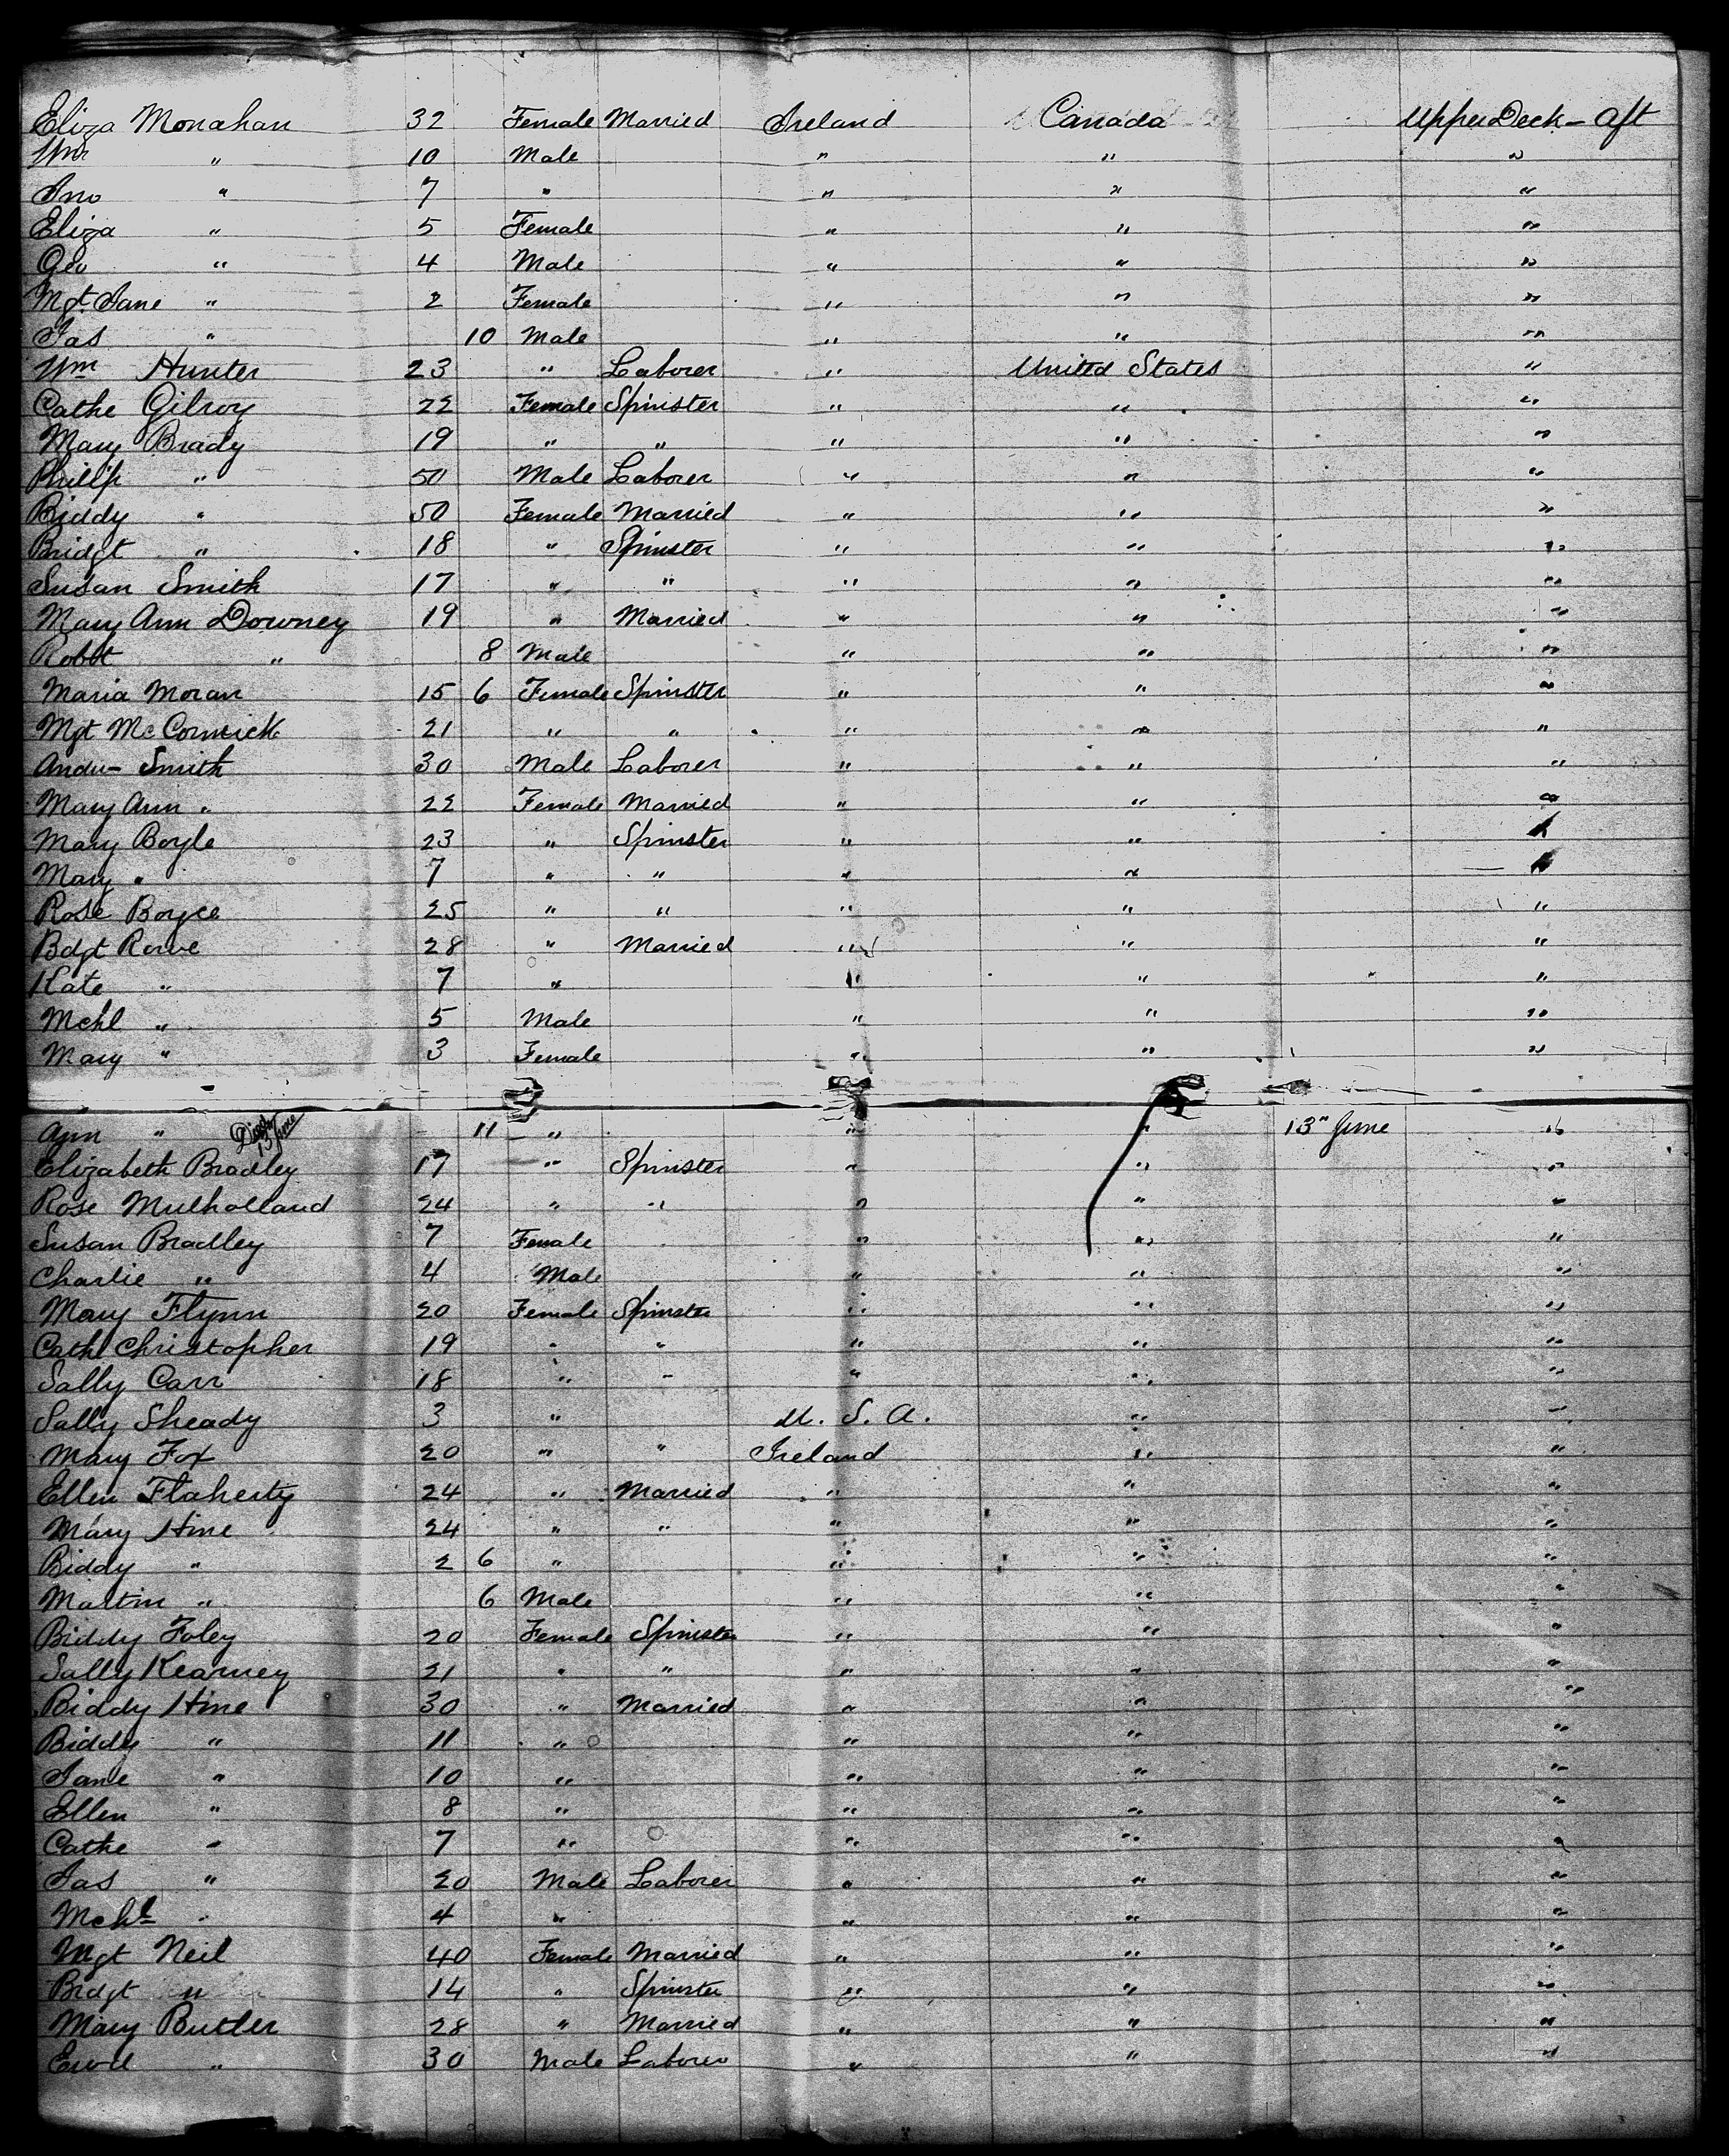 Eliza Monahan 32 Female Married Ireland Canada Upper Deck - aft
Wm " 10 Male " " "
Jno " 7 " " " "
Eliza " 5 Female " " "
Geo " 4 Male " " "
Mgt. Jane " 2 Female " " "
Jas " 10 Male " " "
Wm Hunter 23 " Laborer " United States "
Cathe Gilroy 22 Female Spinster " " "
Mary Brady 19 " " " " "
Phillip " 50 Male Laborer " " "
Biddy " 50 Female Married " " "
Bridgt " 18 " Spinster " " "
Susan Smith 17 " " " " "
Mary Ann Downey 19 " Married " " "
Robt " 8 Male " " "
Maria Moran 15 6 Female Spinster " " "
Mgt McCormick 21 " " " " "
Andw Smith 30 Male Laborer " " "
Mary Ann " 22 Female Married " " "
Mary Boyle 23 " Spinster " "
Mary " 7 " " " "
Rose Boyce 25 " " " " "
Bdgt Rowe 28 " Married " " "
Kate " 7 " " " "
Mchl " 5 Male " " "
Mary " 3 Female " " "
Ann " Died 13 June 11 " " " 13" June "
Elizabeth Bradley 17 " Spinster " " "
Rose Mulholland 24 " " " " "
Susan Bradley 7 Female " " "
Charlie " 4 Male " " "
Mary Flynn 20 Female Spinster " " "
Cath Christopher 19 " " " " "
Sally Carr 18 " " " " "
Sally Sheady 3 " U. S. A. " "
Mary Fox 20 " " Ireland " "
Ellen Flaherty 24 " Married " " "
Mary Hine 24 " " " " "
Biddy " 2 6 " " " "
Martin " 6 Male " " "
Biddy Foley 20 Female Spinster " " "
Sally Kearney 21 " " " " "
Biddy Hine 30 " Married " " "
Biddy " 11 " " " "
Jane " 10 " " " "
Ellen " 8 " " " "
Cathe " 7 " " " "
Jas " 20 Male Laborer " " "
Mchl " 4 " " " "
Mgt Neil 40 Female Married " " "
Bridgt " 14 " Spinster " " "
Mary Butler 28 " Married " " "
" 30 Male Laborer " " "